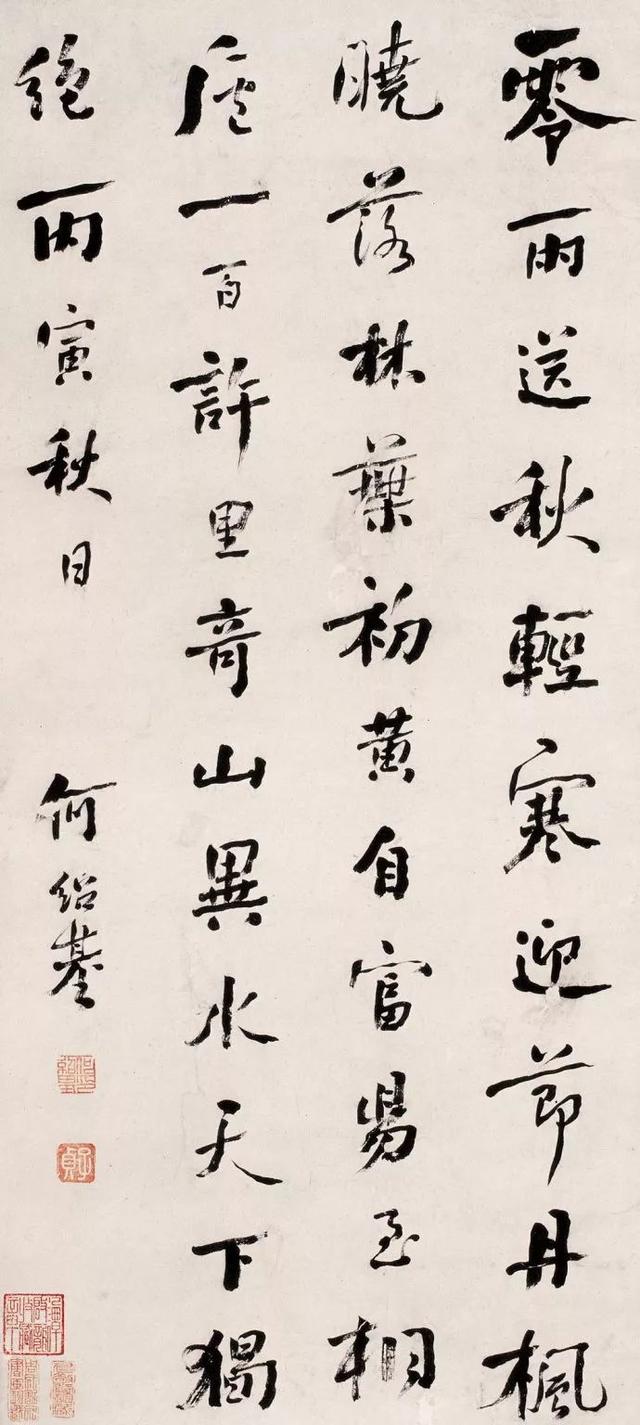 零雨送秋輕寒迎節丹楓
曉落林葉初黃自富昜至桐
廬一百許里奇山異水天下獨
絶丙寅秋日 何紹基
子貞